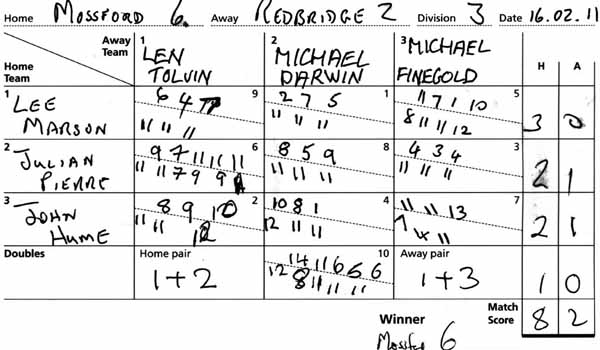 Home MOSSFORD 6. Away REDBRIDGE 2 Division 3 Date 16.02.11
Away Team Home Team 1 LEN TOLVIN 2 MICHAEL DARWIN 3 MICHAEL FINEGOLD H A
1 LEE MARSON 9 6 4 11 11 11 1 2 7 5 11 11 11 5 11 7 1 10 8 11 11 12 3 0
2 JULIAN PIERRE 6 9 7 11 11 11 11 11 7 9 9 8 8 5 9 11 11 11 3 4 3 4 11 11 11 2 1
3 JOHN HUME 2 8 9 10 11 11 12 4 10 8 1 12 11 11 7 11 11 13 7 4 11 2 1
Doubles Home pair 1+2 10 14 11 6 5 6 12 8 11 11 11 Away pair 1+3 1 0
Winner Mossford 6 Match Score 8 2